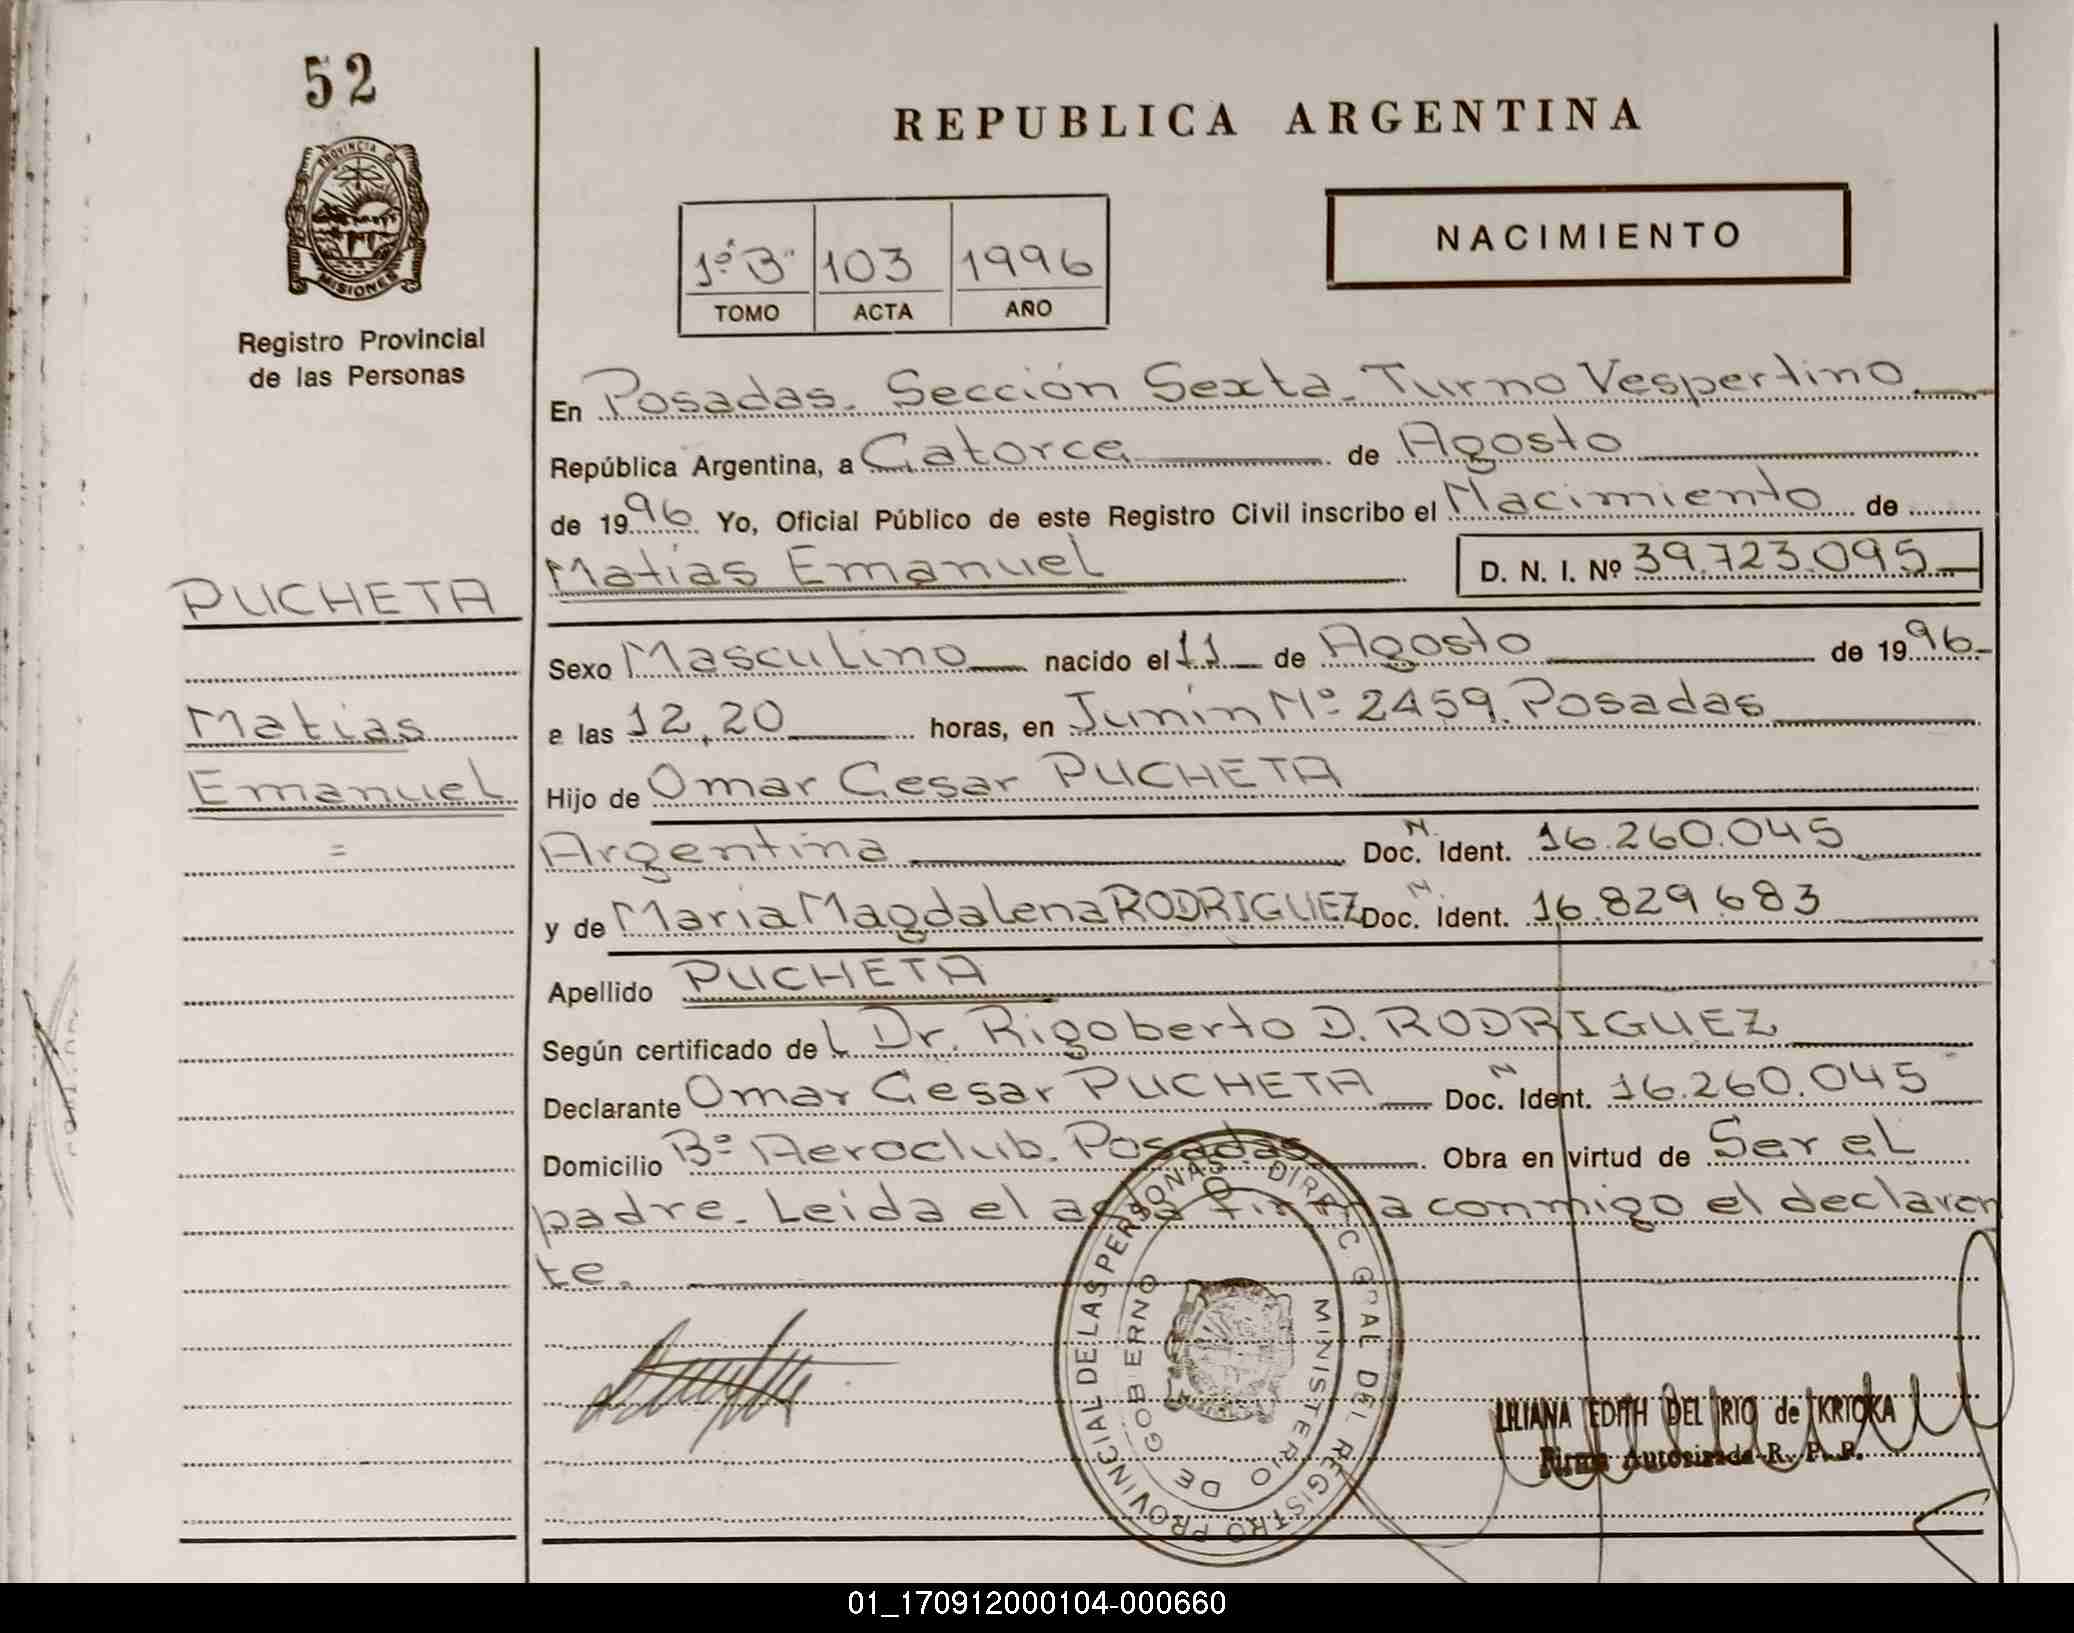 52
PROVINCIA DE
MISIONES
Registro Provincial
de las Personas
REPUBLICA ARGENTINA
NACIMIENTO
1º "B" 103 1996
TOMO ACTA AÑO
En Posadas. Sección Sexta. Turno Vespertino.
República Argentina, a Catorce de Agosto
de 1996 Yo, Oficial Público de este Registro Civil inscribo el Nacimiento de
Matias Emanuel D. N. I. Nº 39.723.095
PUCHETA
Matias
Emanuel
=
Sexo Masculino nacido el 11 de Agosto de 1996
a las 12,20 horas, en Junin Nº 2459. Posadas
Hijo de Omar Cesar PUCHETA
Argentina Doc. N. Ident. 16.260.045
y de Maria Magdalena RODRIGUEZ Doc. N. Ident. 16.829.683
Apellido PUCHETA
Según certificado del Dr. Rigoberto D. RODRIGUEZ
Declarante Omar Cesar PUCHETA Doc. N Ident. 16.260.045
Domicilio Bº Aeroclub. Posadas Obra en virtud de Ser el
padre. Leida el acta firma conmigo el declaran
te.
DIREC. GRAL DEL REGISTRO PROVINCIAL DE LAS PERSONAS
MINISTERIO DE GOBIERNO
LILIANA EDITH DEL RIO de KRICKA
Firma Autorizada R. P. P.
01_170912000104-000660